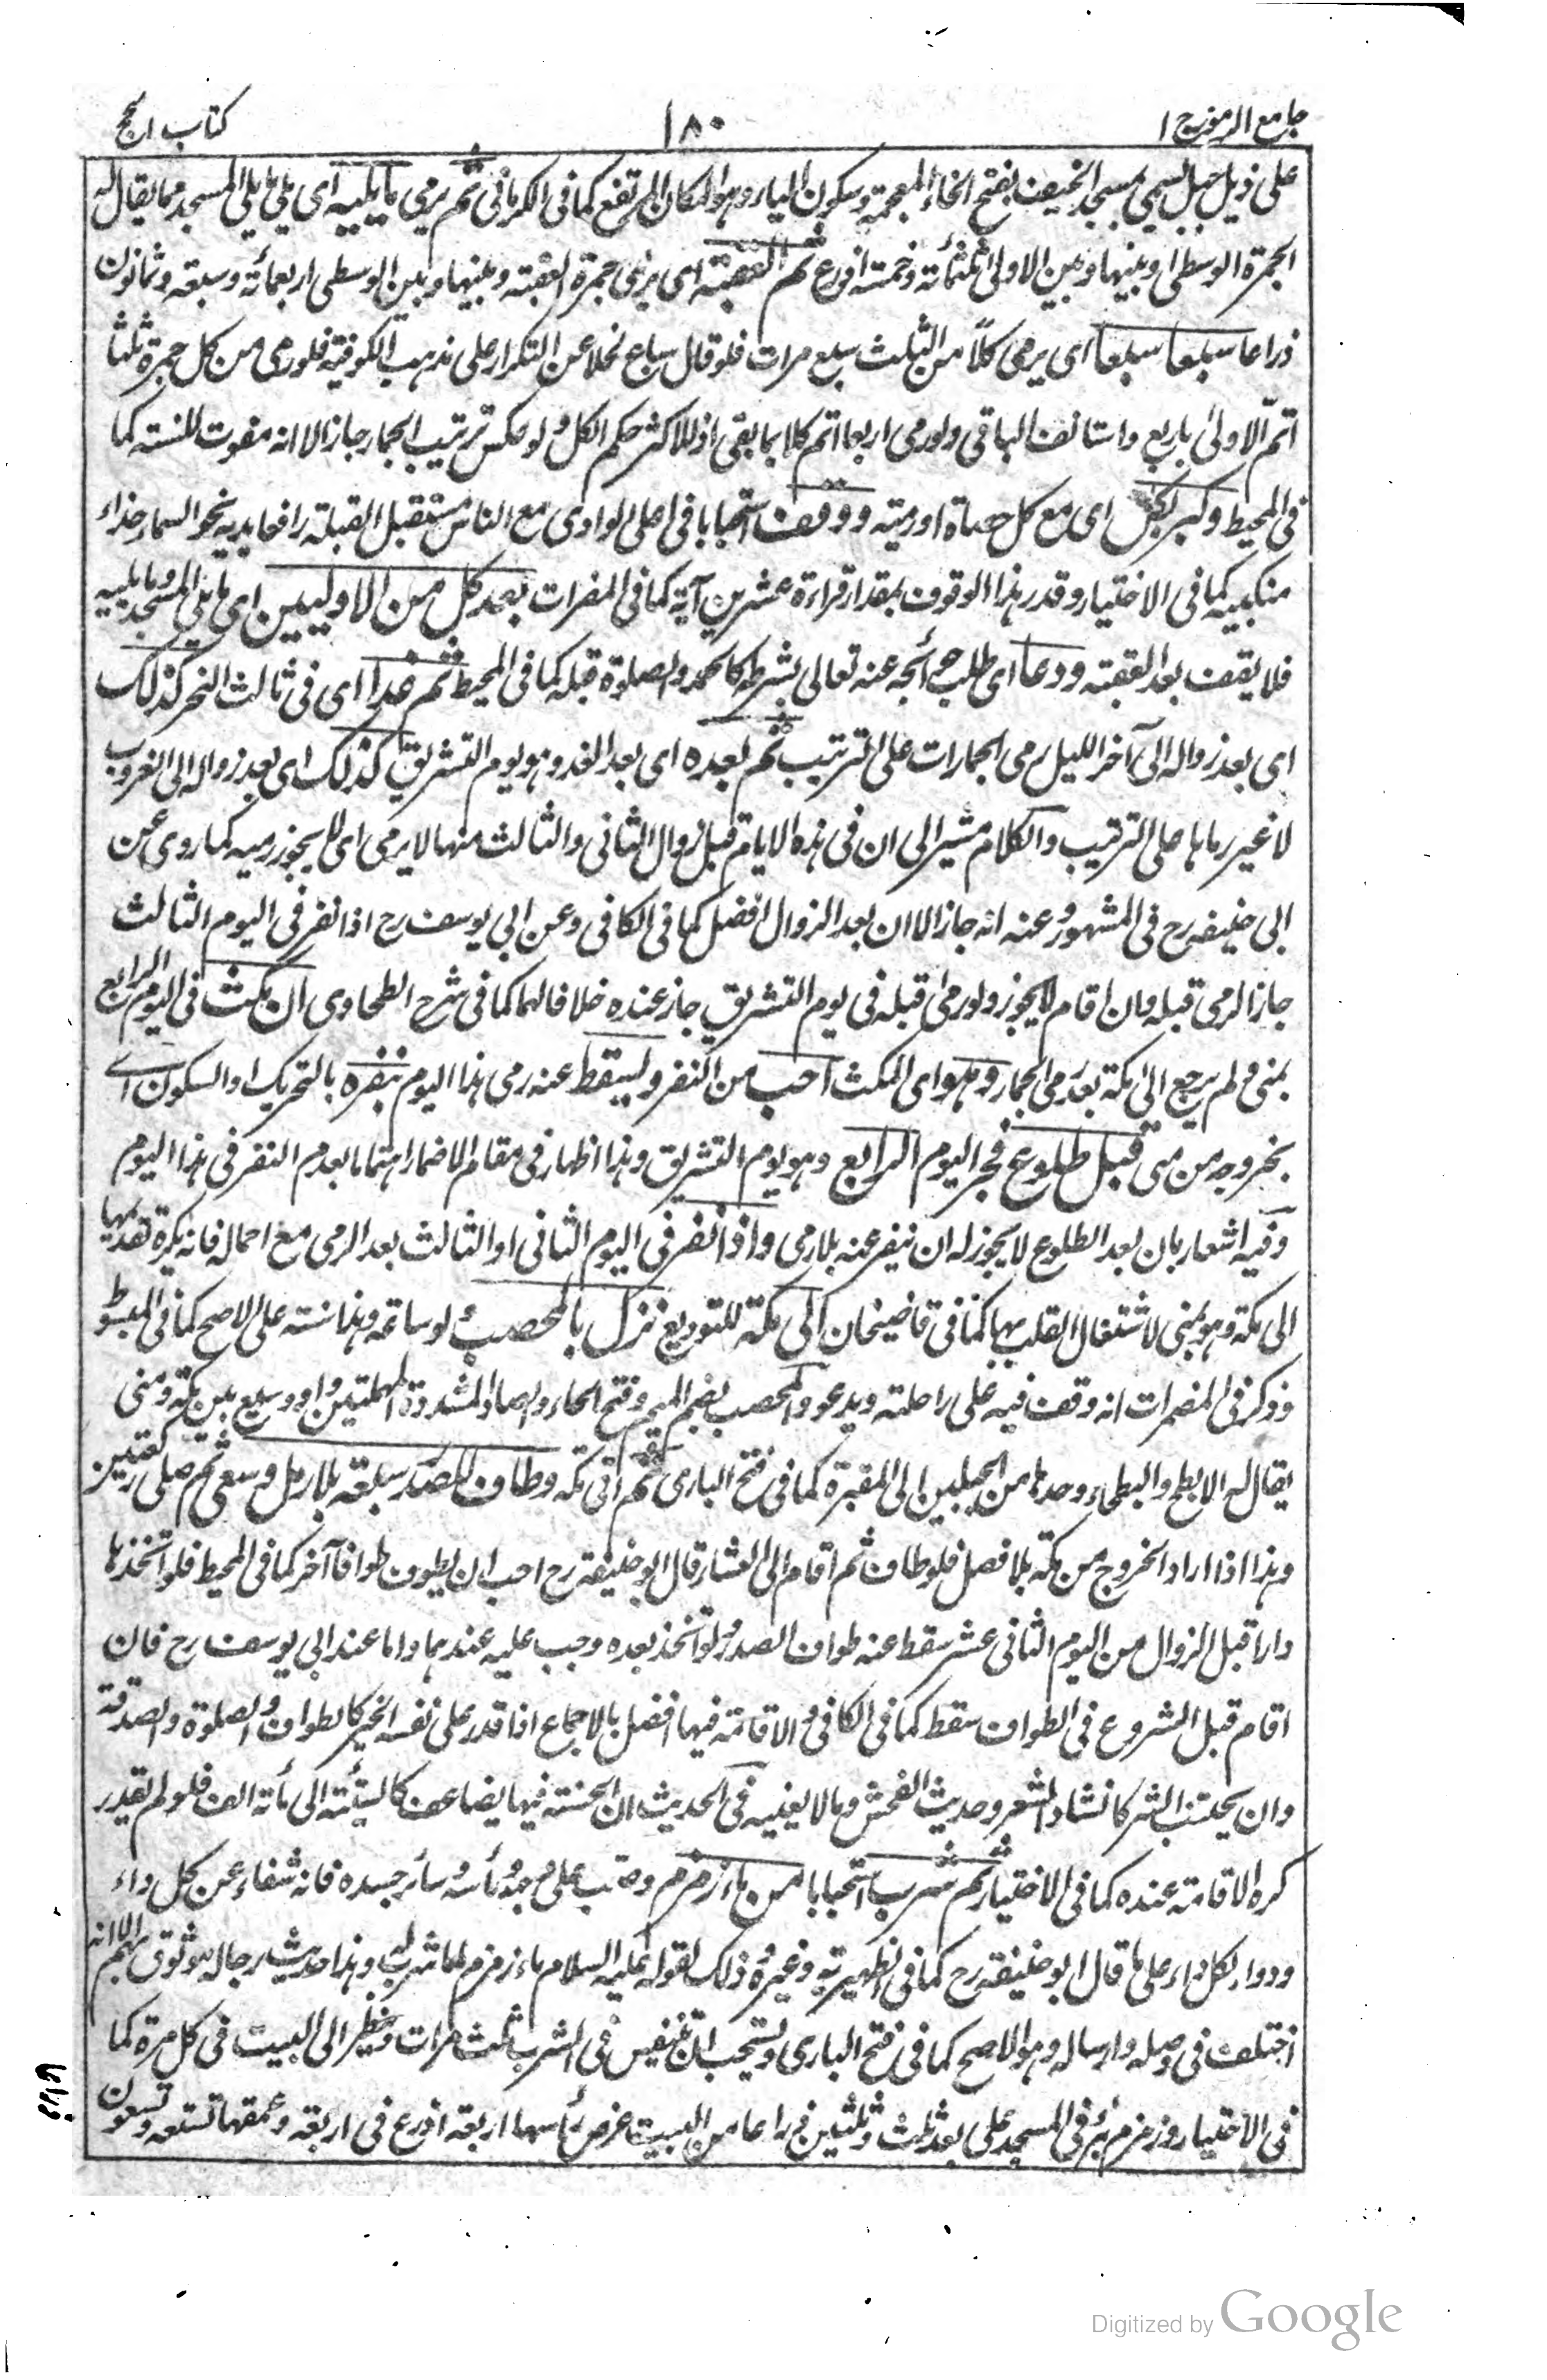 جامع الرموز ج ١
١٨٠
كتاب الحج
على ذيل جبل يسمى مسجد الخيف بفتح الخاء المعجمة وسكون الياء وهو المكان المرتفع كما فى الكرمانى ثم يرمى ما يليه اى يلى ما يلى المسجد مما يقال له
الجمرة الوسطى وبينها وبين الاولى ثلثمائة وخمسة اذرع ثم العقبة اى يرمى جمرة العقبة وبينها وبين الوسطى اربعمائة وسبعة وثمانون
ذراعا سبعا سبعا اى يرمى كلاً من الثلث سبع مرات فلو قال سباع لخلا عن التكرار على مذهب الكوفية فلو رمى من كل جمرة ثلثا
اتمّ الاولى باربع واستانف الباقى ولو رمى اربعا اتم كلا بما بقى اذ للاكثر حكم الكل ولو عكس ترتيب الجمار جاز الا انه مفوت للسنة كما
فى المحيط وكبر لكل اى مع كل حصاة او رمية ووقف استحبابا فى اصل الوادى مع الناس مستقبل القبلة رافعا يديه نحو السماء حذاء
منكبيه كما فى الاختيار وقدر هذا الوقوف بمقدار قراءة عشرين آية كما فى المضمرات بعد كل من الاوليين اى ما يلى المسجد وما يليه
فلا يقف بعد العقبة ودعا اى طلب حوائجه عنه تعالى بشرطه كالحمد والصلوة قبله كما فى المحيط ثم غدا اى فى ثالث النحر كذلك
اى بعد زواله الى آخر الليل رمى الجمارات على الترتيب ثم بعده اى بعد الغد وهو يوم التشريق كذلك اى بعد زواله الى الغروب
لا غير رماها على الترتيب والكلام مشير الى ان فى هذه الايام قبل زوال الثانى والثالث منها لا يرمى اى لا يجوز رميه كما روى عن
ابى حنيفة رح فى المشهور وعنه انه جاز الا ان بعد الزوال افضل كما فى الكافى وعن ابى يوسف رح اذا نفر فى اليوم الثالث
جاز الرمى قبله وان اقام لا يجوز ولو رمى قبله فى يوم التشريق جاز عنده خلافا لهما كما فى شرح الطحاوى ان مكث فى اليوم الرابع
بمنى ولم يرجع الى مكة بعد رمى الجمار وهو اى المكث احب من النفر ويسقط عنه رمى هذا اليوم بنفره بالتحريك او السكون اى
بخروجه من منى قبل طلوع فجر اليوم الرابع وهو يوم التشريق وهذا اظهار فى مقام الاضمار اهتماما بعدم النفر فى هذا اليوم
وفيه اشعار بان بعد الطلوع لا يجوز له ان ينفر عنه بلا رمى واذا نفر فى اليوم الثانى او الثالث بعد الرمى مع احماله فانه يكره تقديمها
الى مكة وهو بمنى لاشتغال القلب بها كما فى قاضيخان الى مكة للتوديع نزل بالمحصب لو ساعة وهذا سنة على الاصح كما فى المبسوط
وذكر فى المضمرات انه وقف فيه على راحلته ويدعو والمحصب بضم الميم وفتح الحاء والصاد المشددة المهملتين واد وسيع بين مكة ومنى
يقال له الابطح والبطحاء وحدها من الجبلين الى المقبرة كما فى فتح البارى ثم اتى مكة وطاف للصدر سبعة بلا رمل وسعى ثم صلى ركعتين
وهذا اذا اراد الخروج من مكة بلا فصل فلو طاف ثم اقام الى العشاء قال ابو حنيفة رح احب ان يطوف طوافا آخر كما فى المحيط فلو اتخذها
دارا قبل الزوال من اليوم الثانى عشر سقط عنه طواف الصدر ولو اتخذ بعده وجب عليه عندهما واما عند ابى يوسف رح فان
اقام قبل الشروع فى الطواف سقط كما فى الكافى والاقامة فيها افضل بالاجماع اذا قدر على نفسه الخير كالطواف والصلوة والصدقة
وان يجتنب الشر كانشاد الشعر وحديث الفحش وما لا يعنيه فى الحديث ان الحسنة فيها يضاعف كالسيئة الى مأته الف فلو لم يقدر
كره الاقامة عنده كما فى الاختيار ثم شرب استحبابا من ماء زمزم وصب على وجهه ورأسه وسائر جسده فانه شفاء عن كل داء
ودواء لكل داء على ما قال ابو حنيفة رح كما فى الظهيرية وغيره وذلك لقوله عليه السلام ماء زمزم لما شرب له وهذا حديث رجاله موثوق بهم الا انه
اختلف فى وصله وارساله وهو الاصح كما فى فتح البارى ويستحب ان يتنفس فى الشرب ثلث مرات وينظر الى البيت فى كل مرة كما
فى الاختيار وزمزم بئر فى المسجد على بعد ثلث وثلثين ذراعا من البيت عرض رأسها اربعة اذرع فى اربعة وعمقها تسعة وتسعون
Digitized by Google